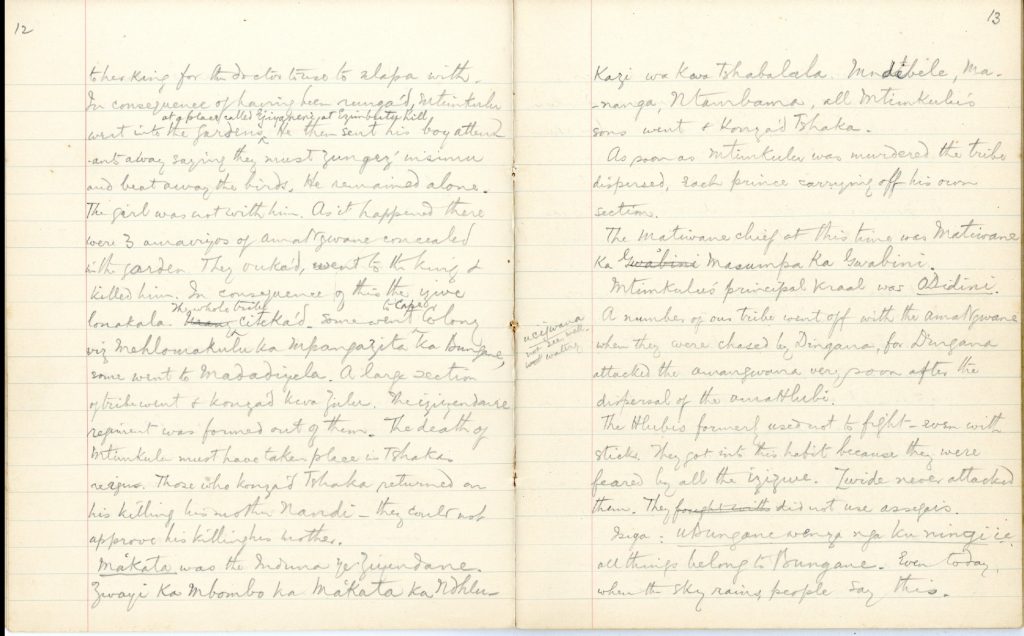 12
to her king for the doctor to use to elapa with.
In consequence of having been nunga'd, Mtimkulu
at a place called Ezinyeni, at Ezimbutu hill
went into the gardens. He then sent his boy attend
-ants away saying they must 'zungeza' insimu
and beat away the birds. He remained alone.
The girl was not with him. As it happened there
were 3 amaviyos of amaNgwane concealed
in the garden. They vuka'd, went to the king &
killed him. In consequence of this the izwe
The whole tribe to Cape
lonakala. citeka'd. Some went Colony
viz Mehlomakulu ka Mpangazita ka Bungane,
some went to Madadiyela. A large section
of tribe went & konza'd kwa Zulu. The iziyendane
regiment was formed out of them. The death of
Mtimkulu must have taken place in Tshaka's
reign. Those who konza'd Tshaka returned on
his killing his mother Nandi – they could not
approve his killing his mother.
Makata was the Induna ye Ziyendane.
Zwayi ka Mbombo ka Makata ka Ndhlu-
ucijwana
not see well
waiting
13
kazi wa kwa Tshabalala. Mndebele, Ma-
-nanga, Ntambama, all Mtimkulu's
sons went & konza'd Tshaka.
As soon as Mtimkulu was murdered the tribe
dispersed, each prince carrying off his own
section.
The Matiwane chief at this time was Matiwane
ka Gwabini Masumpa ka Gwabini.
Mtimkulu's principal kraal was oDidini.
A number of our tribe went off with the amaNgwane
when they were chased by Dingana, for Dingana
attacked the amangwana very soon after the
dispersal of the amaHlubi.
The Hlubis formerly used not to fight – even with
sticks. They got into this habit because they were
feared by all the izizwe. Zwide never attacked
them. They fought with did not use assegais.
Isiga: uBungane wenza nga ku ningi i.e.
all things belong to Bungane. Even today,
when the sky rains, people say this.